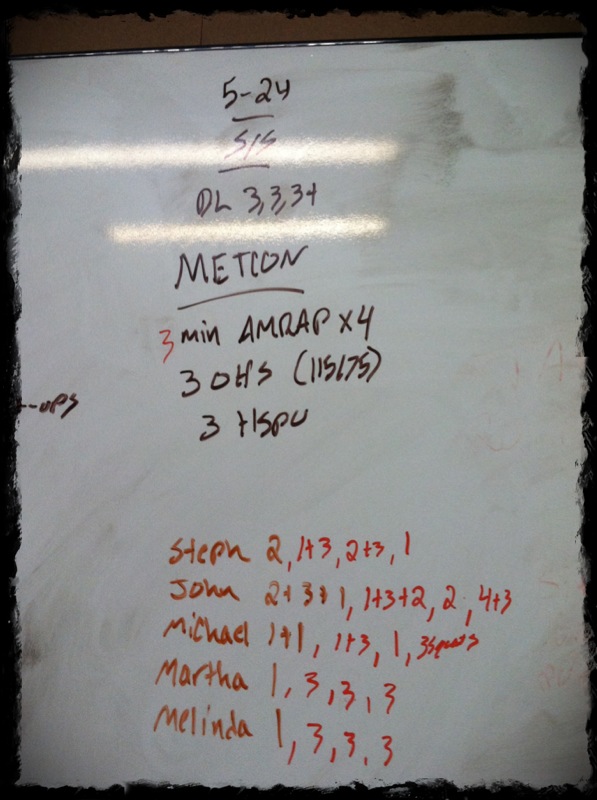 5-24
S/S
DL 3,3,3+
METCON
3 min AMRAP x4
3 OHS (115/75)
3 HSPU
-ups
Steph 2, 1+3, 2+3, 1
John 2+3+1, 1+3+2, 2, 4+3
Michael 1+1, 1+3, 1, 3 squats
Martha 1, 3, 3, 3
Melinda 1, 3, 3, 3